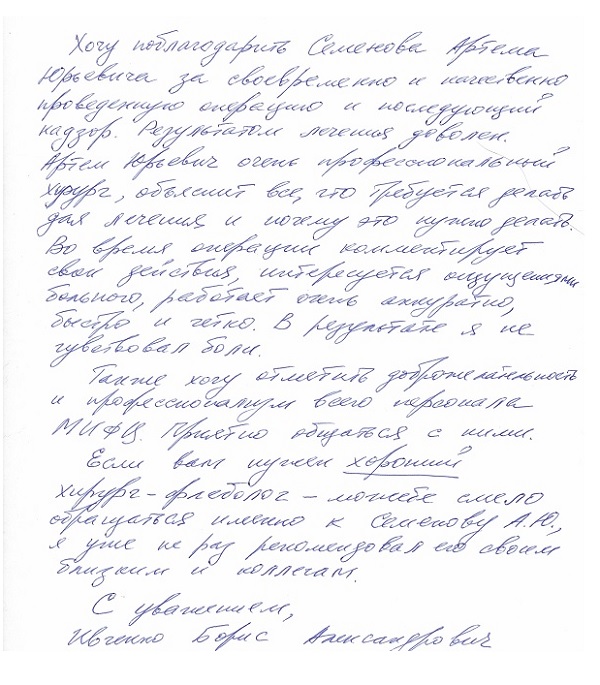 Хочу поблагодарить Семенова Артема
Юрьевича за своевременно и качественно
проведенную операцию и последующий
надзор. Результатом лечения доволен.
Артем Юрьевич очень профессиональный
хирург, объяснит все, что требуется делать
для лечения и почему это нужно делать.
Во время операции комментирует
свои действия, интересуется ощущениями
больного, работает очень аккуратно,
быстро и четко. В результате я не
чувствовал боли.
Также хочу отметить доброжелательность
и профессионализм всего персонала
МИФЦ. Приятно общаться с ними.
Если вам нужен хороший
хирург-флеболог - можете смело
обращаться именно к Семенову А.Ю.,
я уже не раз рекомендовал его своим
близким и коллегам.
С уважением,
Ивченко Борис Александрович